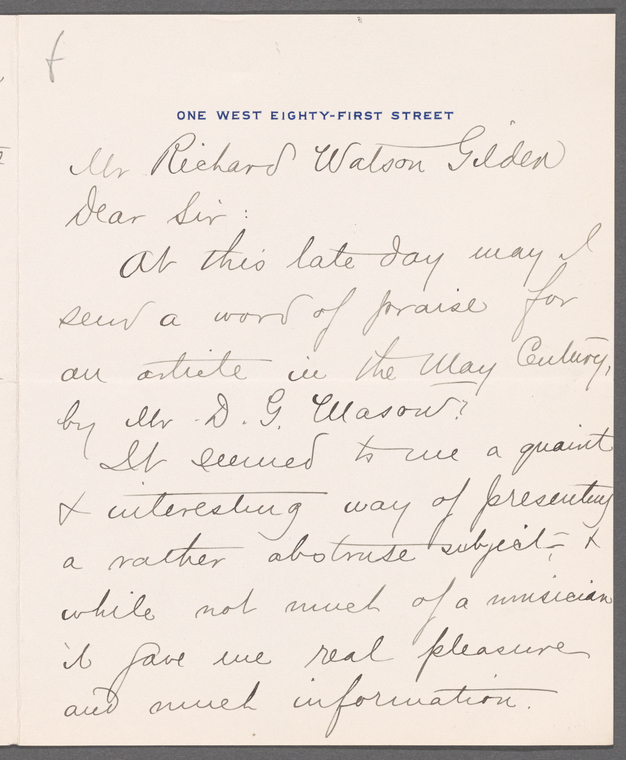 ONE WEST EIGHTY-FIRST STREET
Mr Richard Watson Gilder
Dear Sir:
At this late day may I
send a word of praise for
an article in the May Century,
by Mr. D. G. Mason?
It seemed to me a quaint
& interesting way of presenting
a rather abstruse subject - &
while not much of a musician
it gave me real pleasure
and much information.